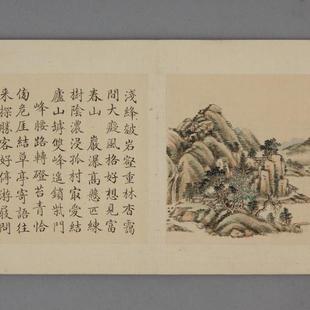 淺絳皴岩壑重林杳靄
間大癡風格好想見富
春山　巖瀑高懸匹練
樹陰濃浸孤村最愛結
廬山塢雙峰遙鎖柴門
峰腰路轉磴苔青恰
傍危厓結草亭寄語往
來探勝客好停游屐問